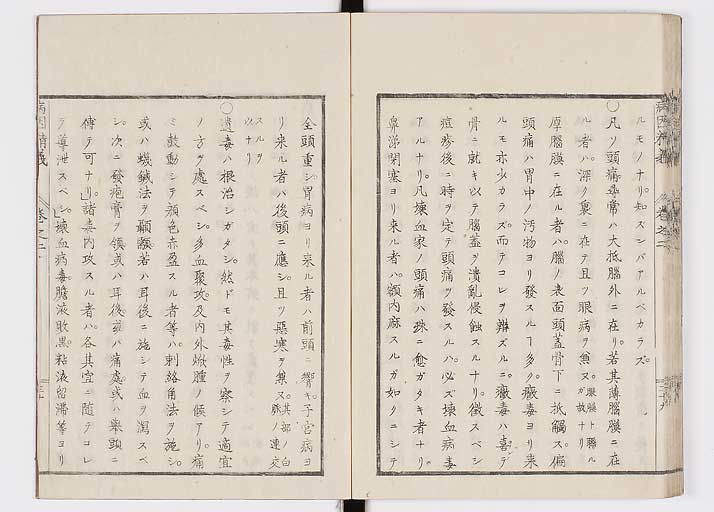 ルモノナリ。知ズンバアルベカラズ。
○凡ソ頭痛尋常ハ大抵腦外ニ在リ。若其薄腦膜ニ在
ル者ハ。深ク裏ニ在テ且ツ眼病ヲ兼ヌ。眼膜ト聯ルガ故ナリ
厚腦膜ニ在ル者ハ。腦ノ表面頭蓋骨下ニ抵觸ス。偏
頭痛ハ胃中ノ汚物ヨリ發スルヿ多ク。黴毒ヨリ来
ルモ亦少カラズ。而テコレヲ辨ズルニ。黴毒ハ喜デ
骨ニ就キ以テ腦蓋ヲ潰亂侵蝕スルナリ。徴スベシ
痘疹後ニ時ヲ定テ頭痛ヲ發スルハ。必ズ壊血病毒
アルナリ。凡壊血家ノ頭痛ハ殊ニ愈ガタキ者ナリ。
鼻涕閉塞ヨリ来ル者ハ。額内麻スルガ如クニシテ
全頭重シ。胃病ヨリ来ル者ハ前頭ニ響キ。子宮病ヨ
リ来ル者ハ後頭ニ應シ。且ツ惡寒ヲ兼ヌ。其部ノ白脈ノ連交
スルヲ以ナリ
○遺毒ハ根治シガタシ。然ドモ其毒性ヲ察シテ適宜
ノ方ヲ處スベシ。多血聚攻及内外焮腫ノ候アリ。痛
ミ鼓動シテ顔色赤盈スル者等ハ。刺絡角法ヲ施シ。
或ハ蜞鍼法ヲ顳顬若ハ耳後ニ施シテ血ヲ瀉スベ
シ。次ニ發疱膏ヲ領或ハ耳後或ハ痛處或ハ擧頭ニ
傳テ可ナリ。諸毒内攻スル者ハ。各其宜ニ随テコレ
ヲ導泄スベシ。壊血病毒。膽液敗黒。粘液留滞等ヨリ
卷之二
卷之二